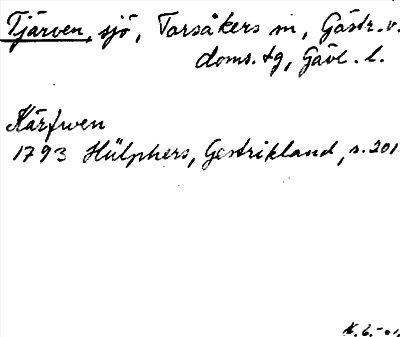 Tjärven, sjö, Torsåkers sn, Gästr. v.
doms. tg, Gävl. l.
Kärfwen
1793 Hülphers, Gestrikland, s. 201